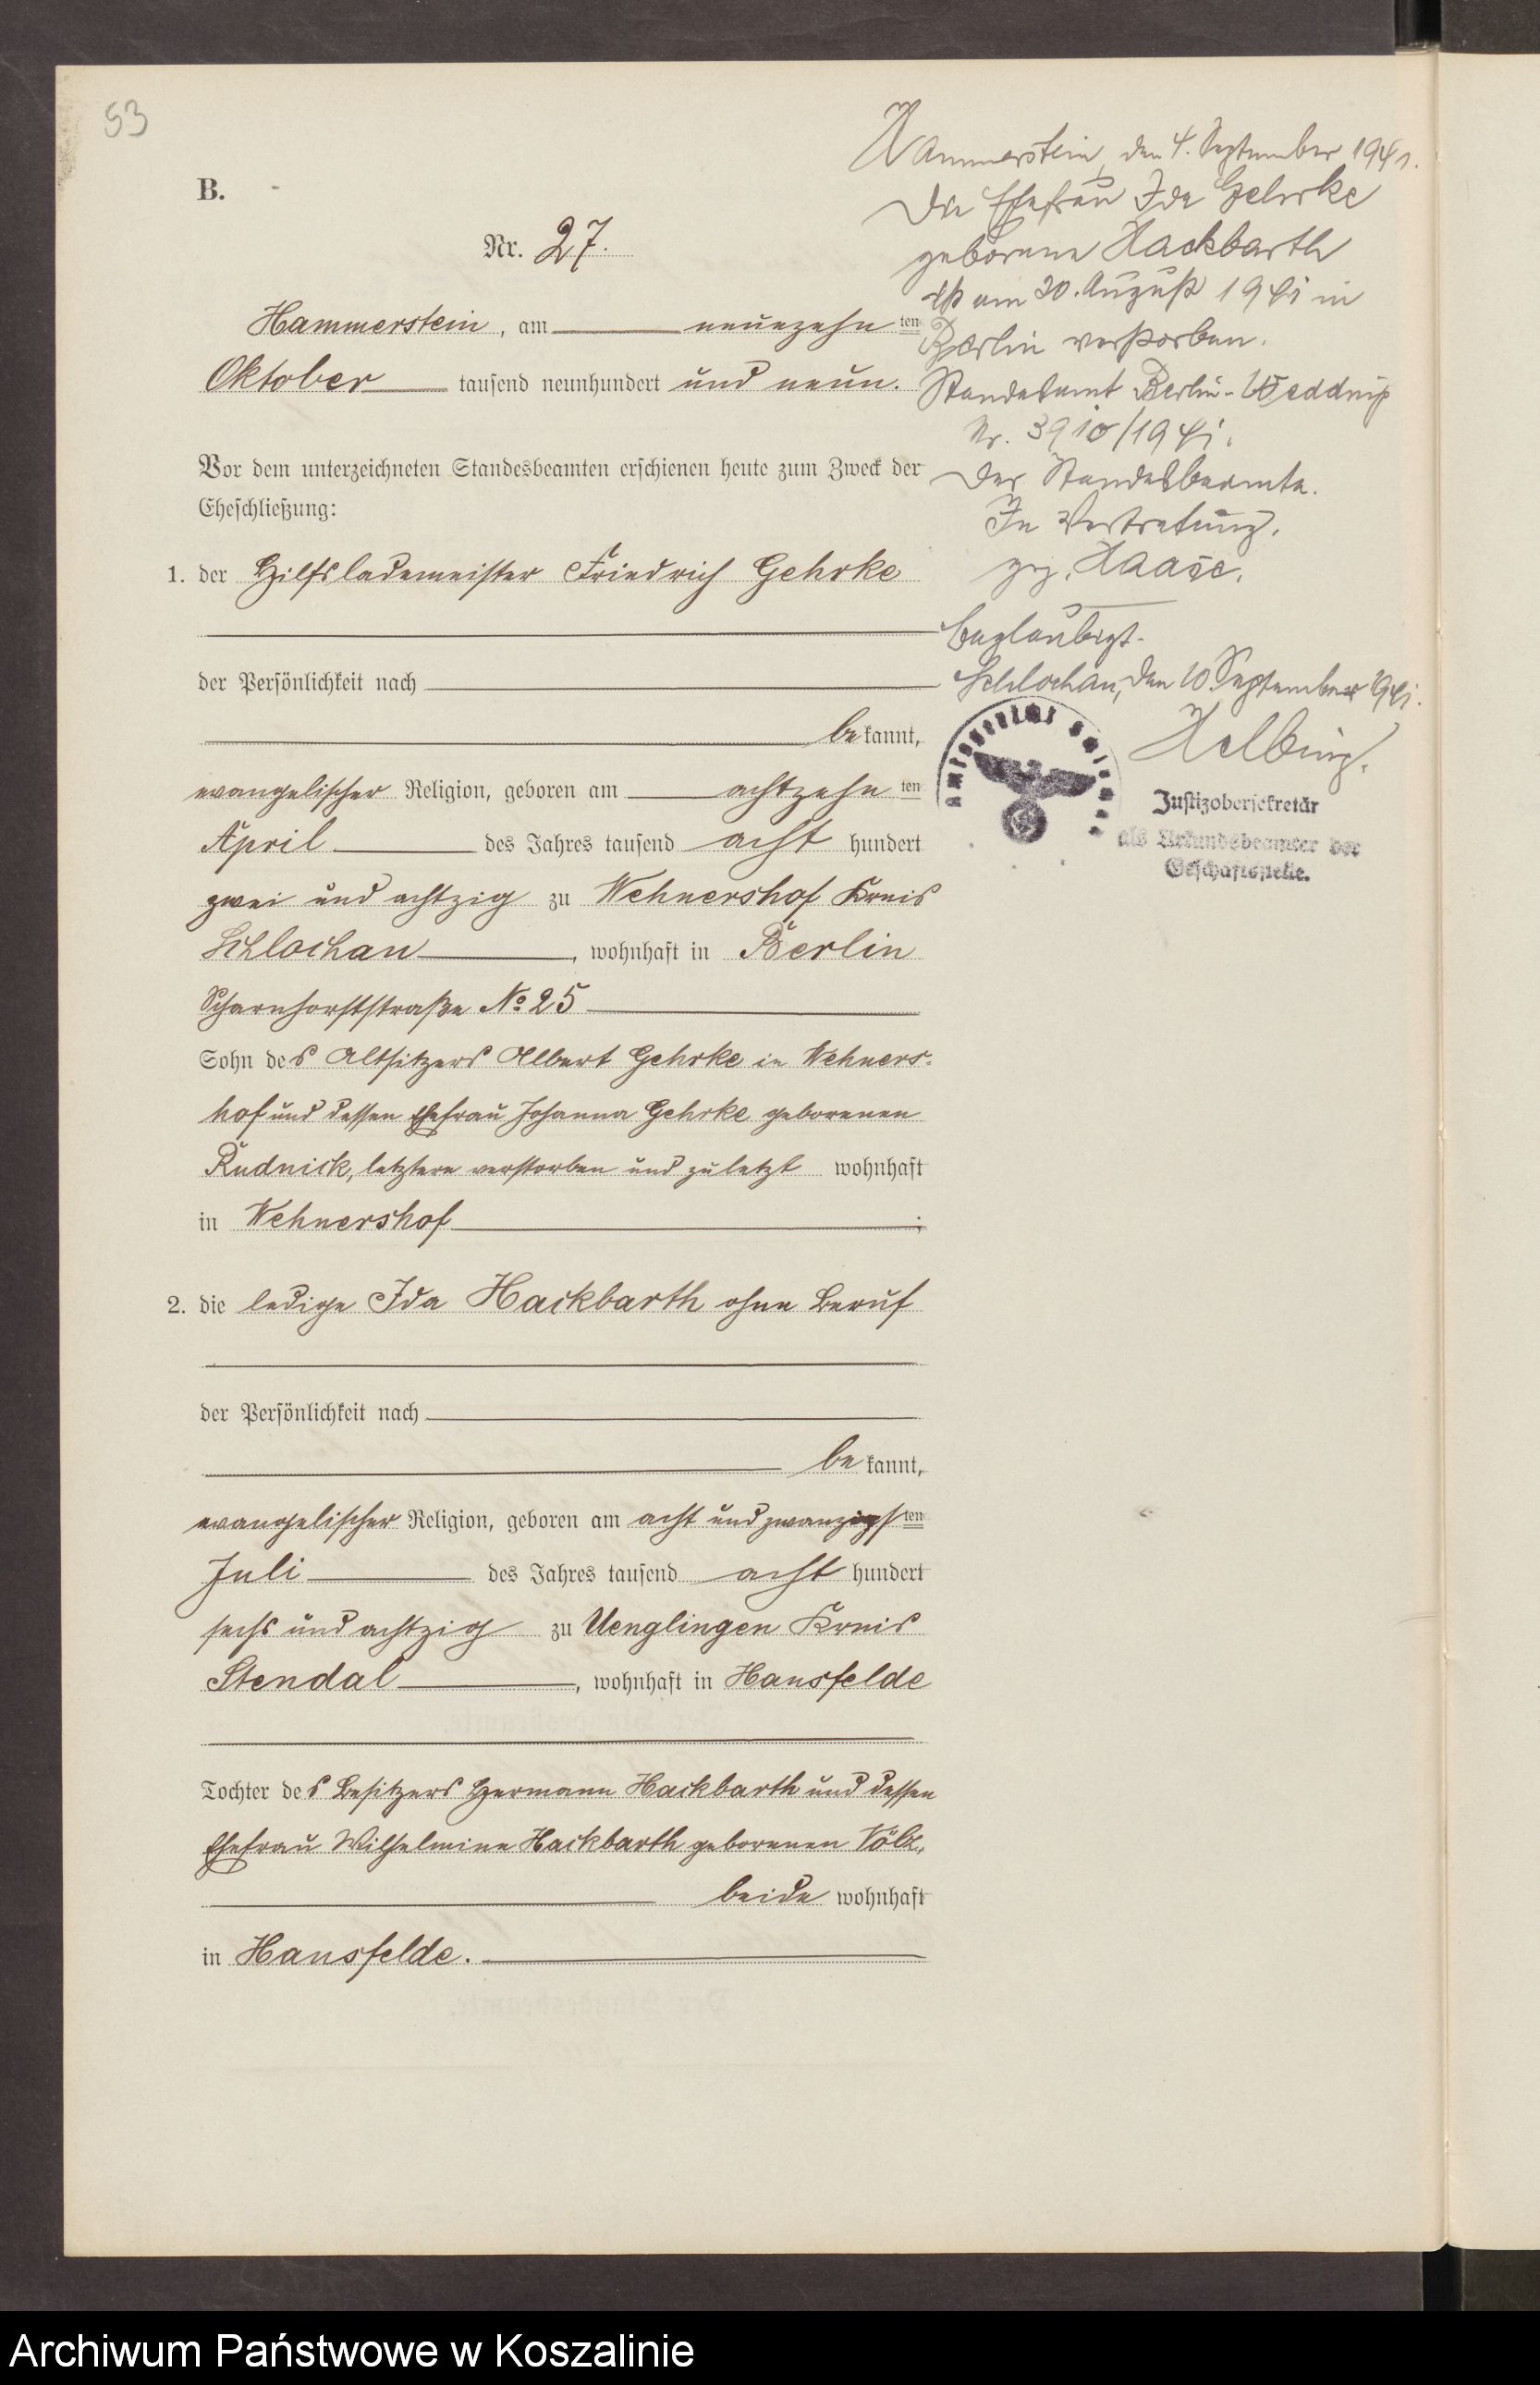 53
B.
Nr. 27.
Hammerstein, am neunzehn ten
Oktober tausend neunhundert und neun.
Vor dem unterzeichneten Standesbeamten erschienen heute zum Zweck der
Eheschließung:
1. der Hilfslademeister Friedrich Gehrke
der Persönlichkeit nach
be kannt,
evangelischer Religion, geboren am achtzehn ten
April des Jahres tausend acht hundert
zwei und achtzig zu Wehnershof Kreis
Schlochau, wohnhaft in Berlin
Scharnhorststraße No 25
Sohn des Altsitzers Albert Gehrke in Wehners-
hof und dessen Ehefrau Johanna Gehrke geborenen
Rudnick, letztere verstorben und zuletzt wohnhaft
in Wehnershof ;
2. die ledige Ida Hackbarth ohne Beruf
der Persönlichkeit nach
be kannt,
evangelischer Religion, geboren am acht und zwanzigsten
Juli des Jahres tausend acht hundert
sechs und achtzig zu Uenglingen Kreis
Stendal, wohnhaft in Hansfelde
Tochter des Besitzers Hermann Hackbarth und dessen
Ehefrau Wilhelmine Hackbarth geborenen Völz,
beide wohnhaft
in Hansfelde.
Hammerstein, den 4. September 1941.
Die Ehefrau Ida Gehrke
geborene Hackbarth
ist am 20. August 1941 in
Berlin verstorben.
Standesamt Berlin-Wedding
Nr. 3910/1941.
Der Standesbeamte.
In Vertretung.
gez. Haase.
Beglaubigt.
Schlochau, den 10. September 1941.
Helbing.
Justizobersekretär
als Urkundsbeamter der
Geschäftsstelle.
Archiwum Państwowe w Koszalinie